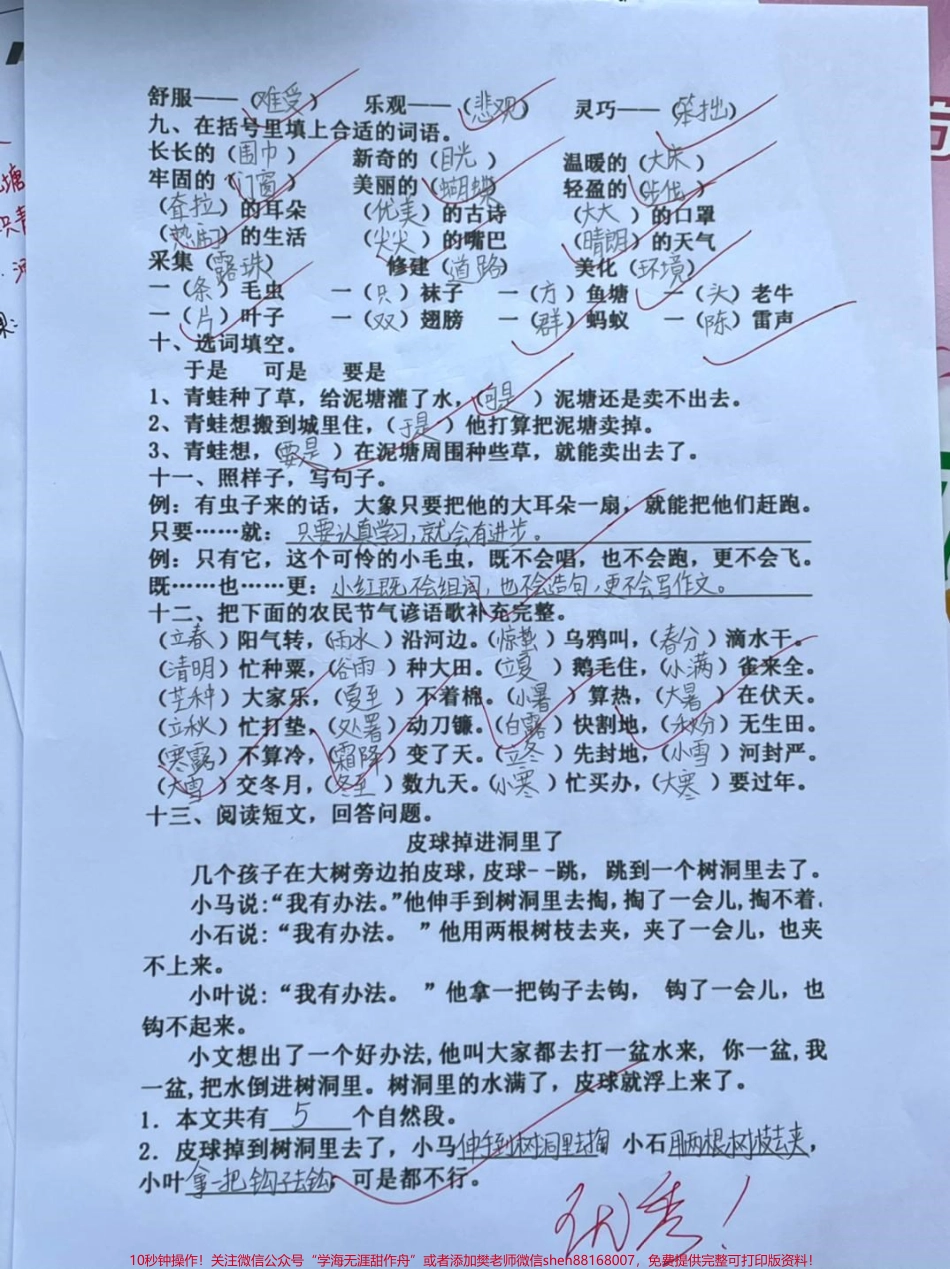 舒服——（难受） 乐观——（悲观） 灵巧——（笨拙）
九、在括号里填上合适的词语。
长长的（围巾） 新奇的（目光） 温暖的（大床）
牢固的（门窗） 美丽的（蝴蝶） 轻盈的（步伐）
（耷拉）的耳朵 （优美）的古诗 （大大）的口罩
（热闹）的生活 （尖尖）的嘴巴 （晴朗）的天气
采集（露珠） 修建（道路） 美化（环境）
一（条）毛虫 一（只）袜子 一（方）鱼塘 一（头）老牛
一（片）叶子 一（双）翅膀 一（群）蚂蚁 一（陈）雷声
十、选词填空。
于是 可是 要是
1、青蛙种了草，给泥塘灌了水，（可是）泥塘还是卖不出去。
2、青蛙想搬到城里住，（于是）他打算把泥塘卖掉。
3、青蛙想，（要是）在泥塘周围种些草，就能卖出去了。
十一、照样子，写句子。
例：有虫子来的话，大象只要把他的大耳朵一扇，就能把他们赶跑。
只要……就：只要认真学习，就会有进步。
例：只有它，这个可怜的小毛虫，既不会唱，也不会跑，更不会飞。
既……也……更：小红既不会组词，也不会造句，更不会写作文。
十二、把下面的农民节气谚语歌补充完整。
（立春）阳气转，（雨水）沿河边。（惊蛰）乌鸦叫，（春分）滴水干。
（清明）忙种粟，（谷雨）种大田。（立夏）鹅毛住，（小满）雀来全。
（芒种）大家乐，（夏至）不着棉。（小暑）算热，（大暑）在伏天。
（立秋）忙打垫，（处署）动刀镰。（白露）快割地，（秋分）无生田。
（寒露）不算冷，（霜降）变了天。（立冬）先封地，（小雪）河封严。
（大雪）交冬月，（冬至）数九天。（小寒）忙买办，（大寒）要过年。
十三、阅读短文，回答问题。
皮球掉进洞里了
几个孩子在大树旁边拍皮球，皮球--跳，跳到一个树洞里去了。
小马说：“我有办法。”他伸手到树洞里去掏，掏了一会儿，掏不着.
小石说：“我有办法。”他用两根树枝去夹，夹了一会儿，也夹
不上来。
小叶说：“我有办法。”他拿一把钩子去钩，钩了一会儿，也
钩不起来。
小文想出了一个好办法，他叫大家都去打一盆水来，你一盆，我
一盆，把水倒进树洞里。树洞里的水满了，皮球就浮上来了。
1．本文共有 5 个自然段。
2．皮球掉到树洞里去了，小马伸手到树洞里去掏 小石用两根树枝去夹，
小叶拿一把钩子去钩，可是都不行。
优秀！
10秒钟操作！关注微信公众号“学海无涯甜作舟”或者添加樊老师微信sheh88168007，免费提供完整可打印版资料！